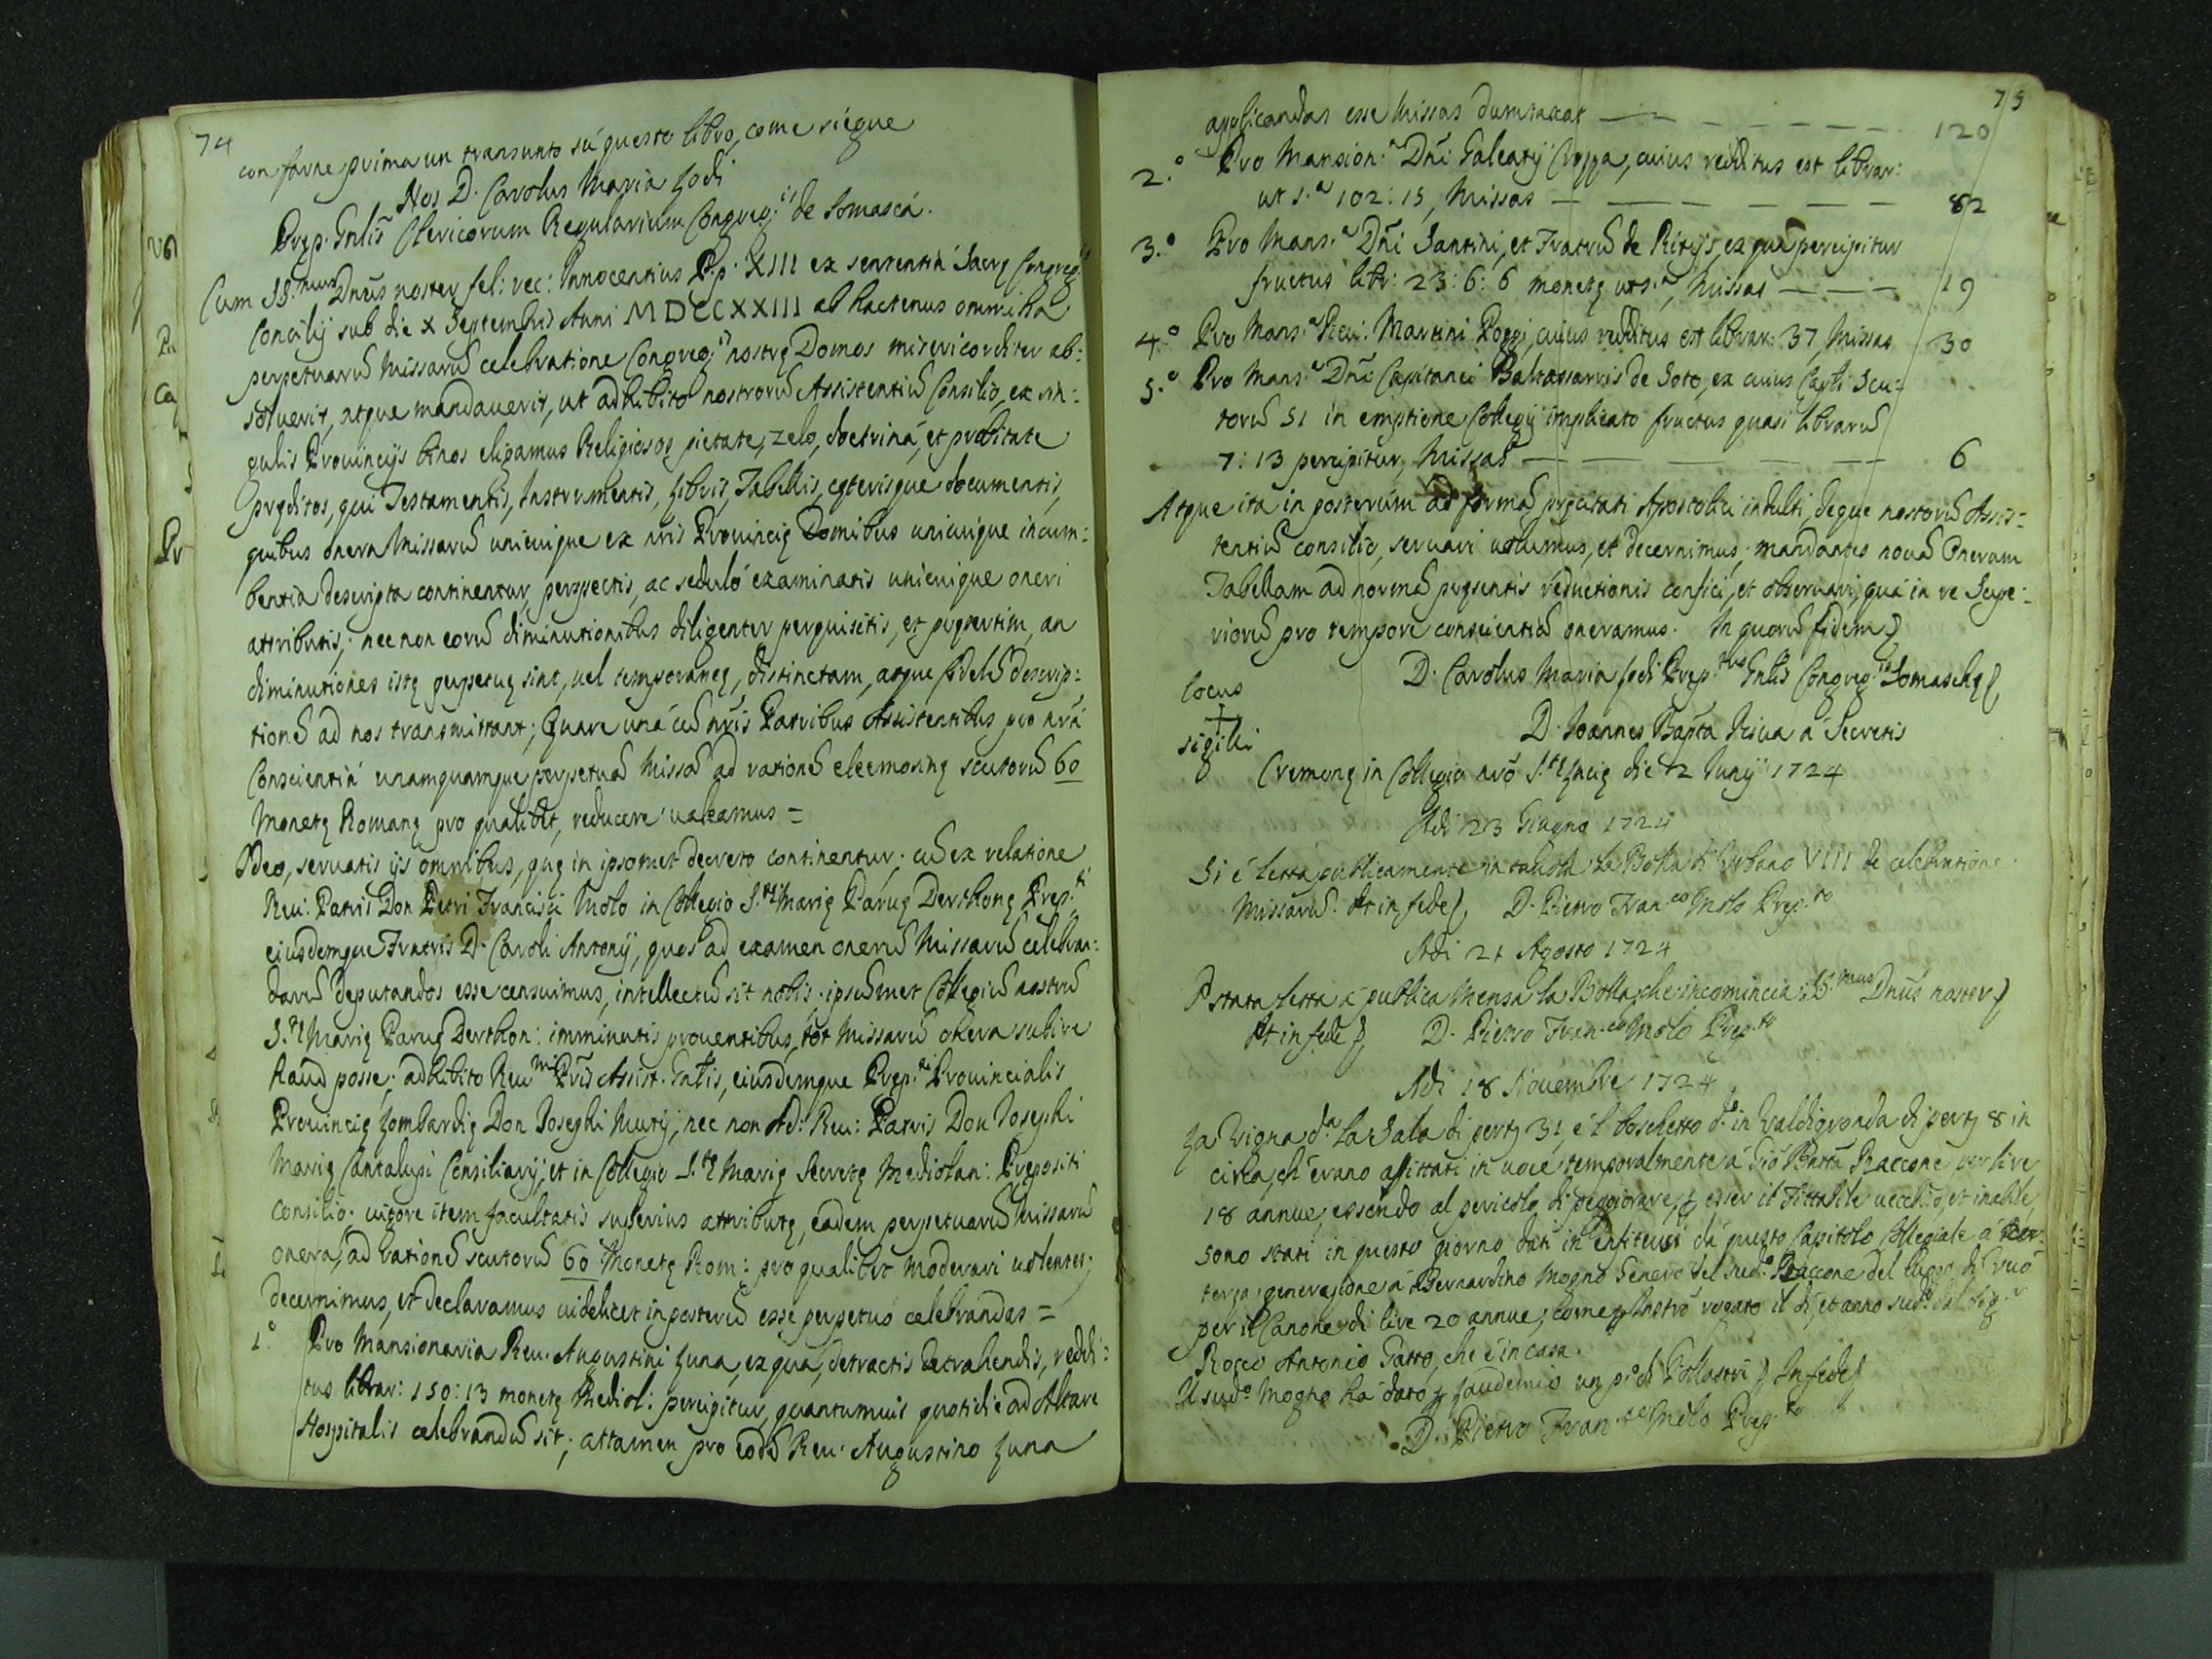 74
con farne prima un transunto sú questo libro, come siegue
Nos D. Carolus Maria Lodi
Pręp. Gn̄lis Clericorum Regularium Congreg.is de Somascá.
Cum SS.mus Dn̄us noster fel: rec: Innocentius P.p. XIII ex sententiá Sacrę Congreg.is
Concilij sub die X Septembris Anni MDCCXXIII ab hactenus ommissa
perpetuarū Missarū celebratione Congreg.is nostrę Domos misericorditer ab:
soluerit, atque mandauerit, ut adhibito nostrorū Assistentiū Consilio, ex sin:
gulis Prouincijs binos eligamus Religiosos pietate, zelo, doctriná, et probitate
pręditos, qui Testamentis, Instrumentis, Libris, Tabellis, cęterisque documentis,
quibus onera Missarū unicuique ex nr̄is Prouincię Domibus unicuique incum:
bentia descripta continentur, perspectis, ac seduló examinatis unicuique oneri
attributis; nec non eorū diminutionibus diligenter perquisitis, et pręsertim, an
diminutiones istę perpetuę sint, uel temporaneę, distinctam, atque fidelē descrip:
tionē ad nos transmittant; Quare uná cū nr̄is Patribus Assistentibus pro nr̄á
Conscientiá unamquamque perpetuā Missā ad rationē eleemosinę scutorū 60
Monetę Romanę pro qualibet, reducere ualeamus =
Ideo, seruatis ijs omnibus, quę in ipsomet decreto continentur; cū ex relatione
Reu: Patris Don Petri Francisci Molo in Collegio S.tę Marię Paruę Derthonę Prep.ti
eiusdemque Fratris D. Caroli Antonij, quos ad examen onerū Missarū celebran:
darū deputandos esse censuimus, intellectū sit nobis ipsūmet Collegiū nostrū
S.tę Marię Paruę Derthon: imminutis prouentibus, tot Missarū onera subire
haud posse; adhibito Reu.mi Pr̄is Assist. Gn̄lis, eiusdemque Prep.ti Prouincialis
Prouincię Lombardię Don Iosephi Mutij, nec non Ad: Reu: Patris Don Iosephi
Marię Cantalupi Consiliarij, et in Collegio S.tę Marię Secretę Mediolan: Prępositi
Consilio; uigore item facultatis superius attributę, eadem perpetuarū Missarū
onera, ad rationē scutorū 60 Monetę Rom: pro qualibet moderari uolentes;
decernimus, et declaramus uidelicet in posterū esse perpetuó celebrandas =
1.° Pro Mansionaria Reu. Augustini Luna, ex qua, detractis detrahendis, reddi:
tus librar: 150:13 monetę Mediol: percipitur, quantumuis quotidie ad Altare
Hospitalis celebrandū sit; attamen pro eodē Reu: Augustino Luna
75
applicandas esse Missas dumtaxat — 120
2.° Pro Mansion.a Dn̄i Galeatij Coppa, cuius redditus est librar:
ut s.a 102:15, Missas — 82
3.° Pro Mans.a Dn̄i Santini, et Fratrū de Ritijs, ex quá percipitur
fructus libr: 23:6:6 monetę ut s.a, Missas — 19
4.° Pro Mans.a Reu: Martini Poggi, cuius redditus est librar: 37, Missas 30
5.° Pro Mans.a Dn̄i Capitanei Baltassarris de Soto, ex cuius Capli Scu:
torū 51 in emptione Collegij implicato fructus quasi librarū
7:13 percipitur, Missas — 6
Atque ita in posterum ad formā pręcitati Apostolici indulti, deque nostrorū Assis:
tentiū consilio, seruari uolumus, et decernimus; mandantes nouā Onerum
Tabellam ad normā pręsentis reductionis confici, et obseruari, quá in re Supe:
riorū pro tempore conscientiā oneramus. In quorū fidem
D. Carolus Maria Lodi Prep.tus Gn̄lis Congreg.is Somaschę
locus
+
sigilli
D. Ioannes Bap̄ta Riua á Secretis
Cremonę in Collegio nr̄o S.tę Lucię die 12 Iunij 1724
Adi 23 Giugno 1724
Si é letta publicamente in tauola la Bolla di Urbano VIII de celebratione
Missarū. Et in fede D. Pietro Fran.co Molo Prep.to
Adi 21 Agosto 1724
É stata letta á publica Mensa la Bolla, che incomincia: SS.mus Dn̄us noster
Et in fede D. Pietro Fran.co Molo Prep.to
Adi 18 Nouembre 1724
La Vigna d.a la Sala di pert. 31, e 'l boschetto d.° in Valdigronda di pert. 8 in
circa, ch' erano affittati in uoce temporalmente á Gio Batta Raccone per lire
18 annue, essendo al pericolo di peggiorare, p esser il Fittabile uecchio, et inabile,
sono stati in questo giorno dati in enfiteusi dá questo Capitolo Collegiale á ter:
terza generazione á Bernardino Mogno Genero del sud.° Raccone del luogo di Vuó
per il Canone di lire 20 annue; come p Instro rogato il di, et anno sud.° dal Sig.r
Rocco Antonio Gatto, che é in casa.
Il sud.° Mogno ha dato p laudemio un p.° di Pollastri. In fede
D. Pietro Fran.co Molo Prep.to